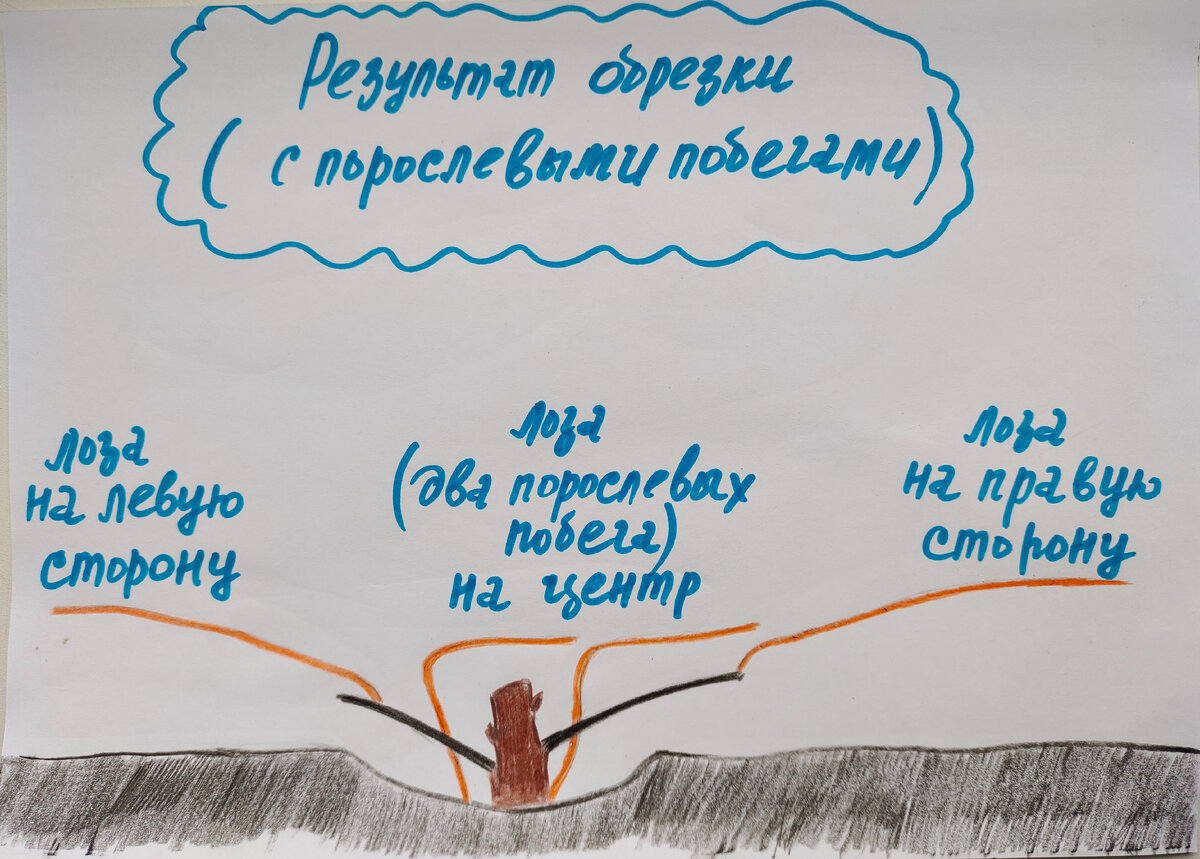 Результат обрезки
( с порослевыми побегами)
лоза
на левую
сторону
лоза
(два порослевых
побега)
на центр
лоза
на правую
сторону